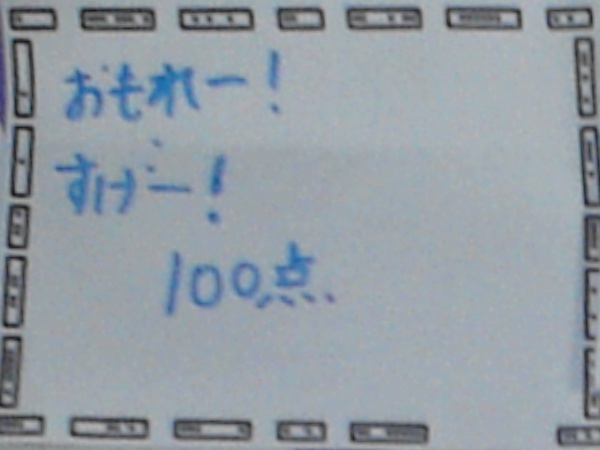 おもれー!
すげー!
100点